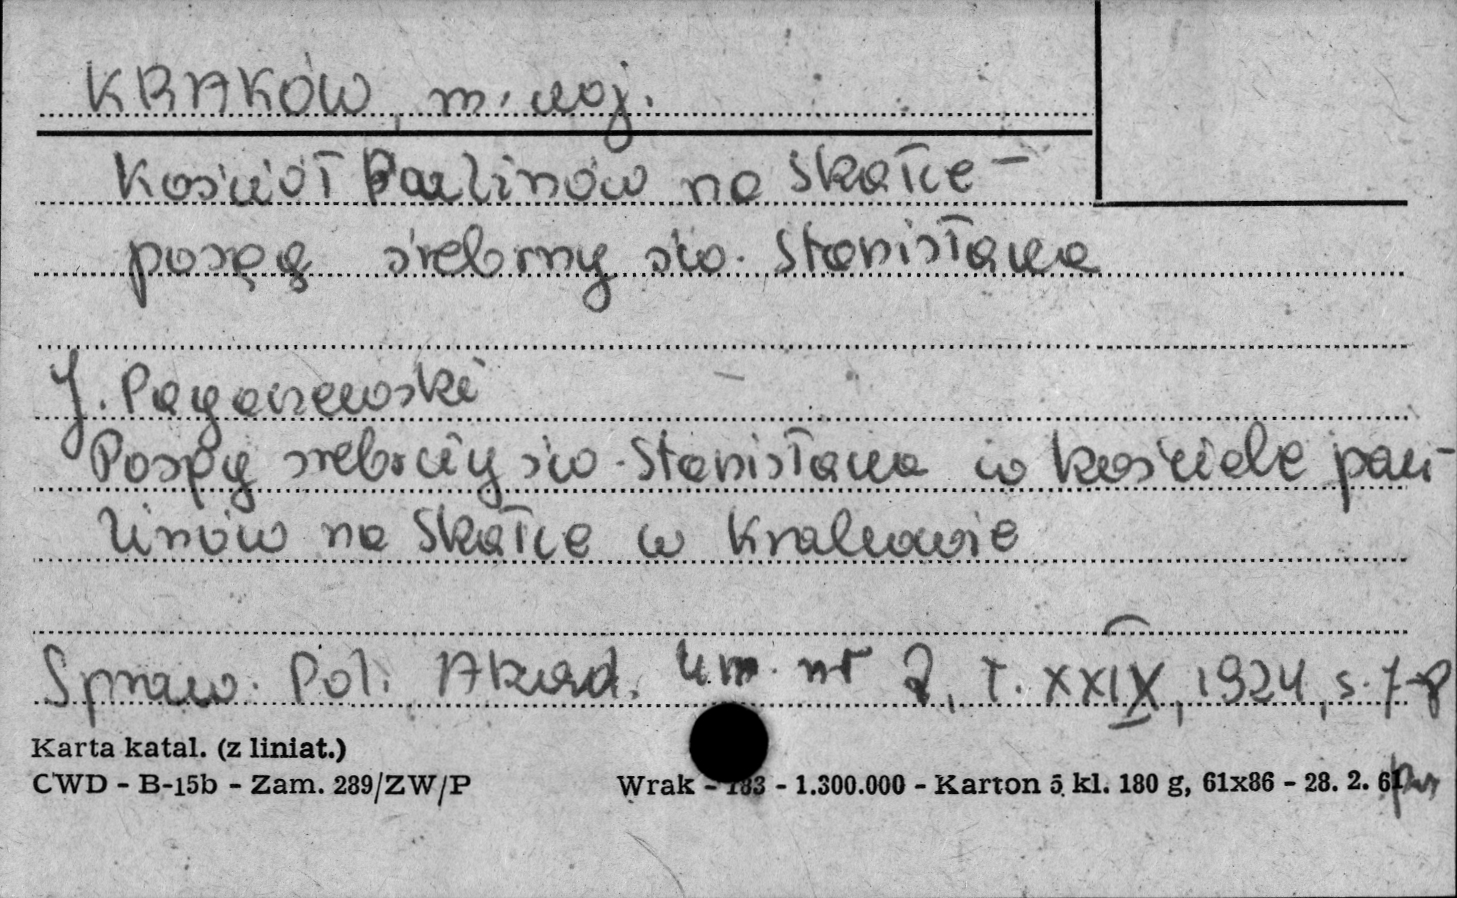 KRAKÓW, m. woj.
Kościół Paulinów na Skałce –
posąg srebrny św. Stanisława
J. Pagaczewski
Posąg srebrny św. Stanisława w kościele pau-
linów na Skałce w Krakowie
Spraw. Pol. Akad. Um. nr 2, T. XXIX, 1924, s. 7-8
Karta katal. (z liniat.)
CWD - B-15b - Zam. 289/ZW/P
Wrak - 183 - 1.300.000 - Karton 5 kl. 180 g, 61x86 - 28. 2. 61